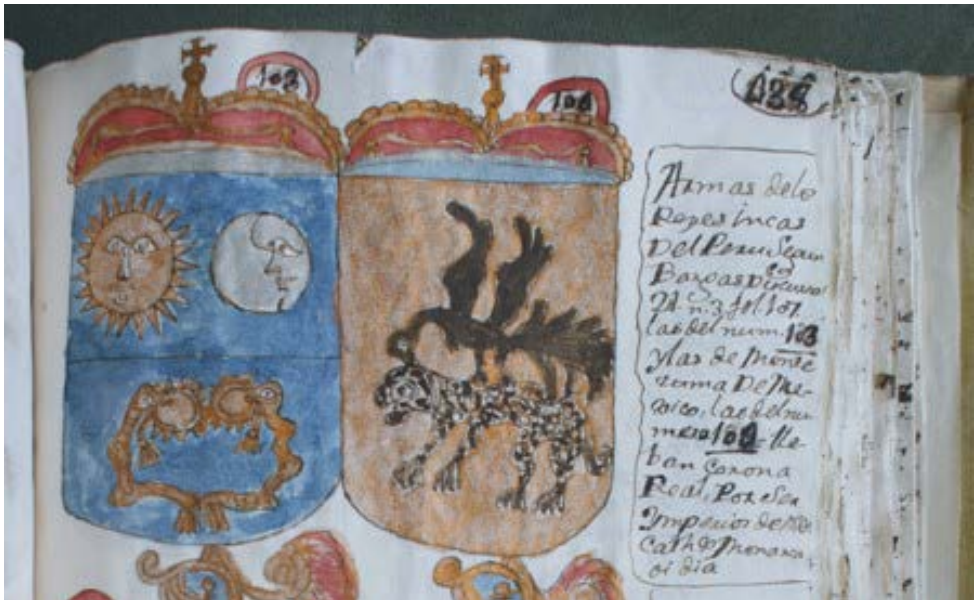 103
104
Armas delo
Reyes incas
Del Peru Segun
Bargas Discurso
n. 3 fol. 107
las del num. 103
y las de Monte
zuma De Me-
xico, las del nu
mero 104 - lle-
ban Corona
Real, Por Ser
Imperios de
Cath. Monarca
oi dia